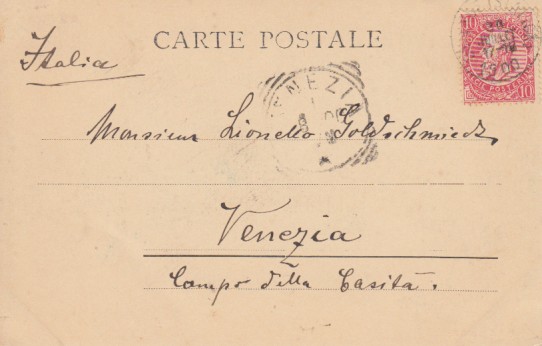 CARTE POSTALE
Italia
10 10
VENEZIA
Monsieur Lionello Goldschmiedt,
Venezia
Campo della Casità.